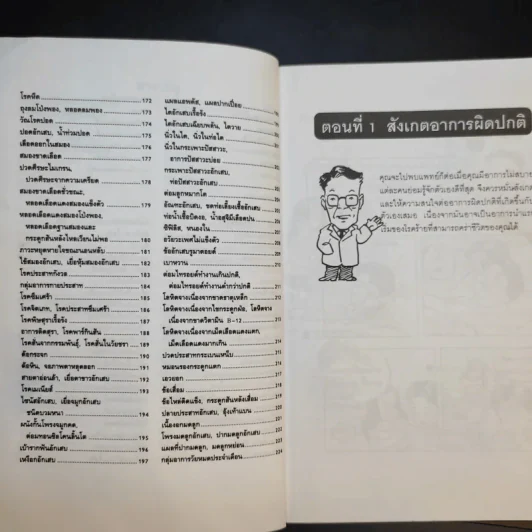 โรคหืด
ถุงลมโป่งพอง, หลอดลมพอง 172
วัณโรคปอด 174
ปอดอักเสบ, น้ำท่วมปอด 175
เลือดออกในสมอง 176
สมองขาดเลือด 177
ปวดศีรษะไมเกรน,
ปวดศีรษะจากความเครียด 178
สมองขาดเลือดชั่วขณะ,
หลอดเลือดแดงสมองแข็งตัว 179
หลอดเลือดแดงสมองโป่งพอง,
หลอดเลือดฐานสมองและ
กระดูกสันหลังไหลเวียนไม่พอ 180
ภาวะหยุดหายใจขณะนอนหลับ 181
ไข้สมองอักเสบ, เยื่อหุ้มสมองอักเสบ 182
โรคประสาทกังวล 183
กลุ่มอาการกายประสาท 184
โรคซึมเศร้า 185
โรคจิตเภท, โรคประสาทซึมเศร้า 186
โรคพิษสุราเรื้อรัง 187
อาการติดสุรา, โรคพาร์กินสัน 188
โรคสั่นจากกรรมพันธุ์, โรคสั่นในวัยชรา 189
ต้อกระจก 190
ต้อหิน, จอภาพตาหลุดลอก 191
สายตาอ่อนล้า, เยื่อตาขาวอักเสบ 192
โรคเมเนียส์ 193
ไซนัสอักเสบ, เยื่อจมูกอักเสบ
ชนิดบวมหนา 194
ผนังกั้นโพรงจมูกคด,
ต่อมทอนซิลโตคลื้นโต 195
เบ้ารากฟันอักเสบ 196
เหงือกอักเสบ 197
แผลแอฟตัส, แผลปากเปื่อย
ไตอักเสบเรื้อรัง
ไตอักเสบเฉียบพลัน, ไตวาย
นิ่วในไต, นิ่วในท่อไต
นิ่วในกระเพาะปัสสาวะ,
อาการปัสสาวะบ่อย
กระเพาะปัสสาวะอักเสบ,
ท่อปัสสาวะอักเสบ
ต่อมลูกหมากโต
อัณฑะอักเสบ, ขดท่อเชื้ออักเสบ
ซิฟิลิส, หนองใน
อวัยวะเพศไม่แข็งตัว
ข้ออักเสบรูมาตอยด์
เบาหวาน
ต่อมไทรอยด์ทำงานเกินปกติ,
ต่อมไทรอยด์ทำงานต่ำกว่าปกติ 211
โลหิตจางเนื่องจากขาดธาตุเหล็ก 212
โลหิตจางเนื่องจากไขกระดูกฝ่อ, โลหิตจาง
เนื่องจากขาดวิตามิน B-12 213
โลหิตจางเนื่องจากเม็ดเลือดแดงแตก,
เม็ดเลือดแดงมากเกิน 214
ปวดประสาทกระเบนเหน็บ 215
หมอนรองกระดูกแตก 216
เอวออก 217
ข้อเสื่อม 218
ข้อไหล่ติดแข็ง, กระดูกสันหลังเสื่อม 219
ปลายประสาทอักเสบ, อุ้งเท้าแบน 220
เนื้องอกมดลูก 221
โพรงมดลูกอักเสบ, ปากมดลูกอักเสบ 222
แผลที่ปากมดลูก, มดลูกหย่อน 223
กลุ่มอาการวัยหมดประจำเดือน 224
ตอนที่ 1 สังเกตอาการผิดปกติ
คุณจะไปพบแพทย์ก็ต่อเมื่อคุณมีอาการไม่สบาย
แต่ละคนย่อมรู้จักตัวเองดีที่สุด จึงควรหมั่นสังเก
และให้ความสนใจต่ออาการผิดปกติที่เกิดขึ้นกับ
ตัวเองเสมอ เนื่องจากมันอาจเป็นอาการนำแร
เริ่มของโรคร้ายที่สามารถคร่าชีวิตของคุณได้